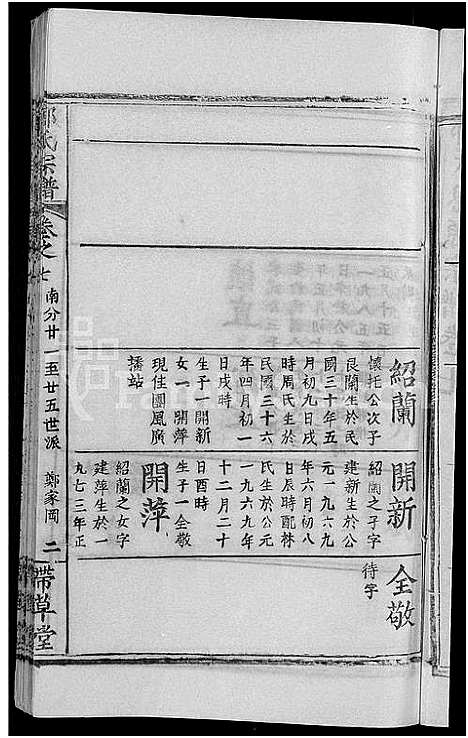 紹蘭
懷托公次子
良蘭生於民
國三十年五
月初九日戌
時周氏生於
民國三十六
年四月初一
日戌時
生子一開新
女一 開萍
現住團風廣
播站
開新
紹蘭之子字
建新生於公
元一九六九
年六月初八
日辰時配林
氏生於公元
一九六九年
十二月二十
日酉時
生子一全敬
開萍
紹蘭之女字
建萍生於一
九七三年正
全敬
待字
氏宗譜
卷之七
南分廿一至廿五世派
鄭家岡
二
帶草堂